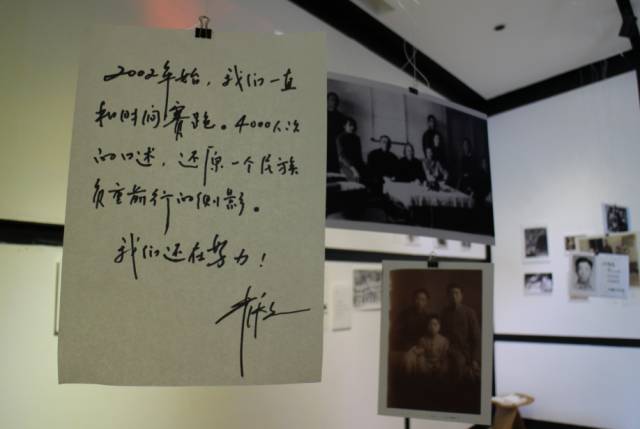 2002年始，我们一直
和时间赛跑。4000人次
的口述，还原一个民族
负重前行的侧影。
我们还在努力！